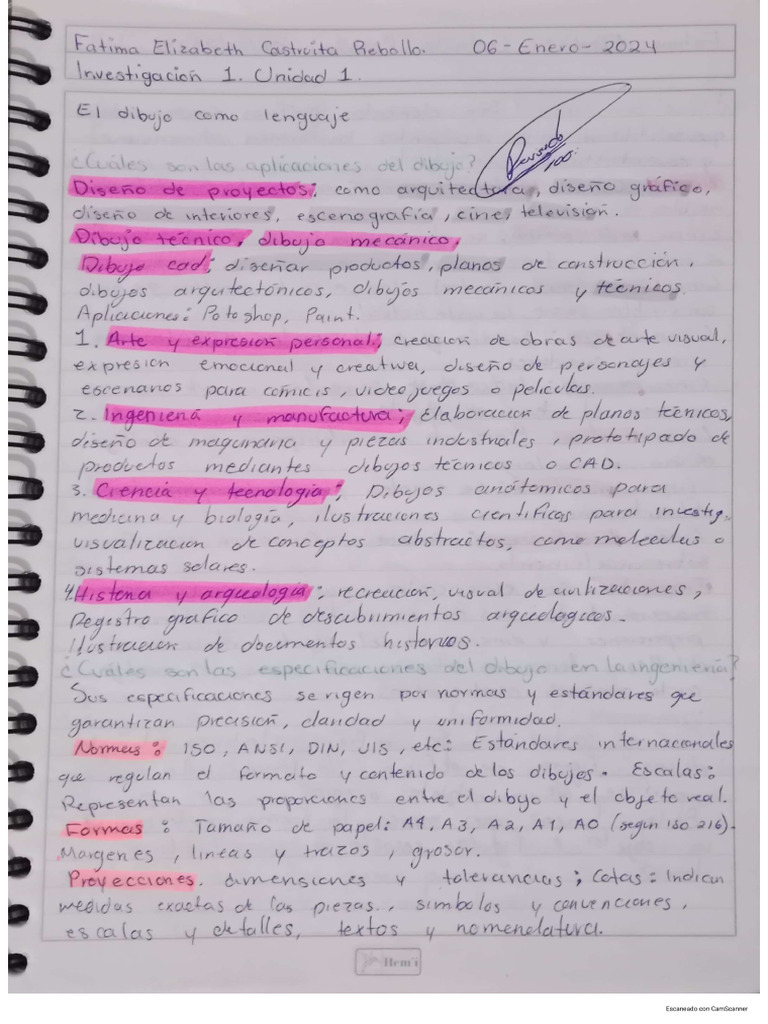 Fatima Elizabeth Castruita Rebollo. 06-Enero-2024
Investigación 1. Unidad 1.
El dibujo como lenguaje
100.
¿Cuáles son las aplicaciones del dibujo?
Diseño de proyectos; como arquitectura, diseño gráfico,
diseño de interiores, escenografía, cine, televisión.
Dibujo técnico, dibujo mecánico,
Dibujo cad; diseñar productos, planos de construcción,
dibujos arquitectónicos, dibujos mecánicos y técnicos.
Aplicaciones: Potoshop, Paint.
1. Arte y expresión personal; creación de obras de arte visual,
expresion emocional y creativa, diseño de personajes y
escenarios para cómicis, videojuegos o peliculas.
2. Ingeniería y manufactura; Elaboracion de planos técnicos,
diseño de maquinaria y piezas industriales, prototipado de
productos mediantes dibujos técnicos o CAD.
3. Ciencia y tecnología; Dibujos anátomicos para
medicina y biología, ilustraciones cientificas para investig.
visualizacion de conceptos abstractos, como moleculas o
sistemas solares.
4. Historia y arqueología: recreación, visual de civilizaciones,
Registro grafico de descubrimientos arqueologicos.
Ilustracion de documentos historicos.
¿Cuáles son las especificaciones del dibujo en la ingeniería?
Sus especificaciones se rigen por normas y estándares que
garantizan precisión, claridad y uniformidad.
Normas: ISO, ANSI, DIN, JIS, etc: Estándares internacionales
que regulan el formato y contenido de los dibujos. Escalas:
Representan las proporciones entre el dibujo y el objeto real.
Formas: Tamaño de papel: A4, A3, A2, A1, A0 (según ISO 216).
Margenes, lineas y trazos, grosor.
Proyecciones. dimensiones y tolerancias; Cotas: Indican
medidas exactas de las piezas, simbolos y convenciones,
escalas y detalles, textos y nomenclatura.
Hem'i
Escaneado con CamScanner